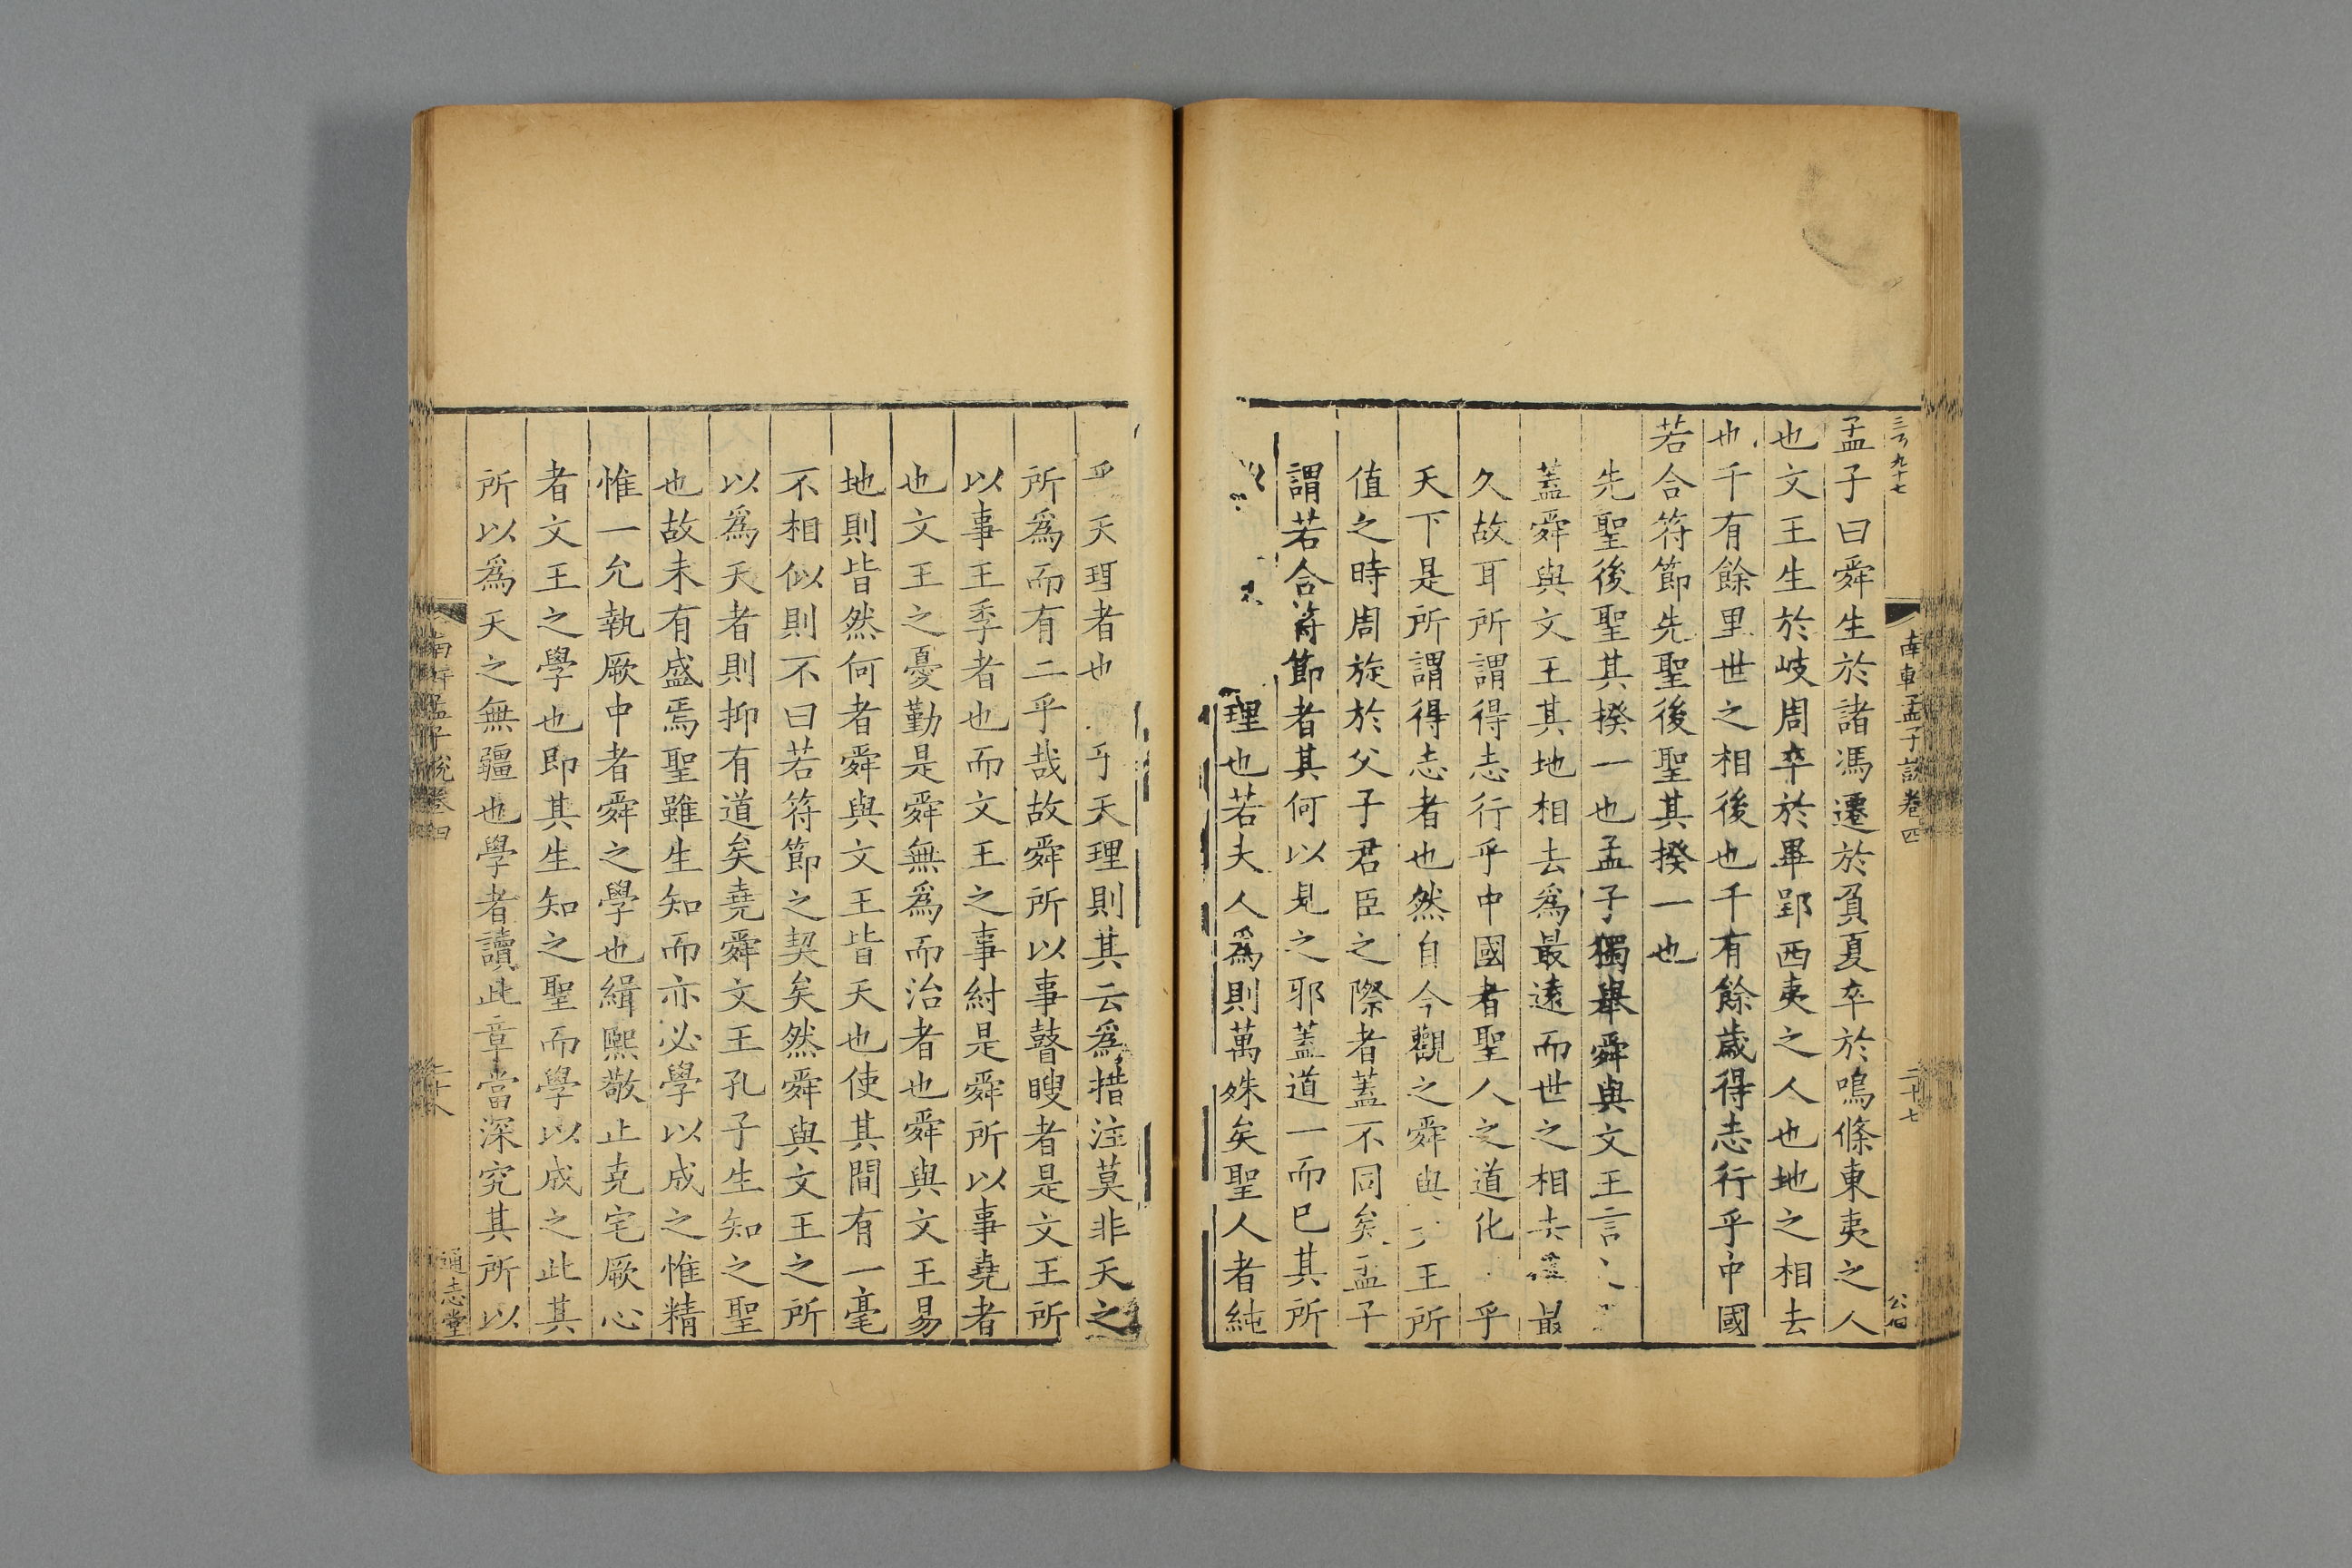 三百九十七
南軒孟子說卷四
二十七
公佰
孟子曰舜生於諸馮遷於負夏卒於鳴條東夷之人
也文王生於岐周卒於畢郢西夷之人也地之相去
也千有餘里世之相後也千有餘歲得志行乎中國
若合符節先聖後聖其揆一也
先聖後聖其揆一也孟子獨舉舜與文王言之
蓋舜與文王其地相去為最遠而世之相去最
久故耳所謂得志行乎中國者聖人之道化乎
天下是所謂得志者也然自今觀之舜與文王所
值之時周旋於父子君臣之際者蓋不同矣孟子
謂若合符節者其何以見之邪蓋道一而已其所
理也若夫人爲則萬殊矣聖人者純
乎天理者也乎天理則其云爲措注莫非天之
所爲而有二乎哉故舜所以事瞽瞍者是文王所
以事王季者也而文王之事紂是舜所以事堯者
也文王之憂勤是舜無爲而治者也舜與文王易
地則皆然何者舜與文王皆天也使其間有一毫
不相似則不曰若符節之契矣然舜與文王之所
以爲天者則抑有道矣堯舜文王孔子生知之聖
也故未有盛焉聖雖生知而亦必學以成之惟精
惟一允執厥中者舜之學也緝熙敬止克宅厥心
者文王之學也即其生知之聖而學以成之此其
所以爲天之無疆也學者讀此章當深究其所以
南軒孟子說卷四
二十八
通志堂